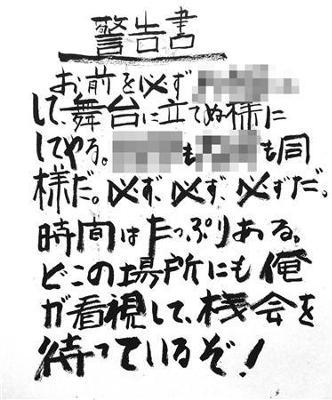 警告書
お前を必ず
して、舞台に立てぬ様に
してやる。も も同
様だ。必ず、必ず、必ずだ。
時間はたっぷりある。
どこの場所にも俺
が看視して、機会を
待っているぞ！